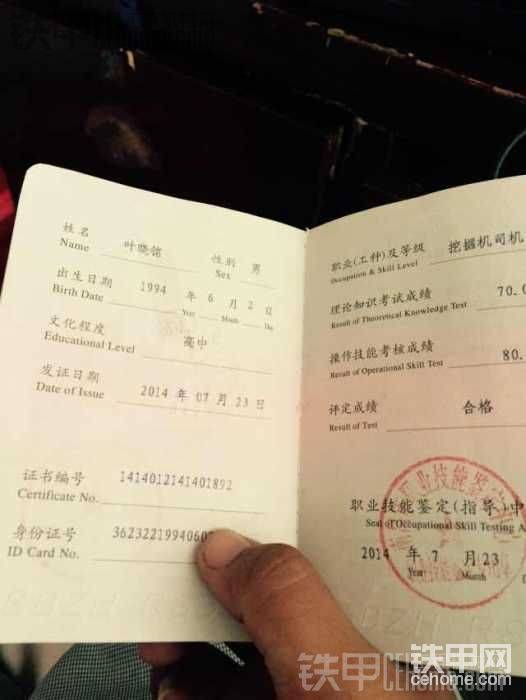 姓名 叶晓铭 性别 男
Name Sex
出生日期 1994 年 6 月 2 日
Birth Date Year Month Da
文化程度 高中
Educational Level
发证日期 2014 年 07 月 23 日
Date of Issue
证书编号 1414012141401892
Certificate No.
身份证号 3623221994060
ID Card No.
职业(工种)及等级 挖掘机司机
Occupation & Skill Level
理论知识考试成绩 70.0
Result of Theoretical Knowledge Test
操作技能考核成绩 80.
Result of Operational Skill Test
评定成绩 合格
Result of Test
职业技能鉴定(指导)中
Seal of Occupational Skill Testing A
2014 年 7 月 23
Year Month D
铁甲网
cehome.com